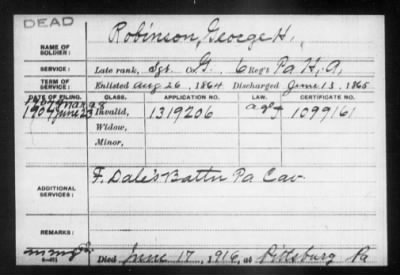 DEAD
NAME OF SOLDIER: Robinson, George H.,
SERVICE: Late rank, Sgt. G, 6 Reg't Pa H, A,
TERM OF SERVICE: Enlisted Aug 26, 1864 Discharged June 13, 1865
DATE OF FILING. CLASS. APPLICATION NO. LAW. CERTIFICATE NO.
1904 June 23 Invalid, 1319206 1099161
Widow,
Minor,
ADDITIONAL SERVICES: F. Dale's Battn Pa Cav.
REMARKS:
Died June 17, 1916, at Pittsburg Pa